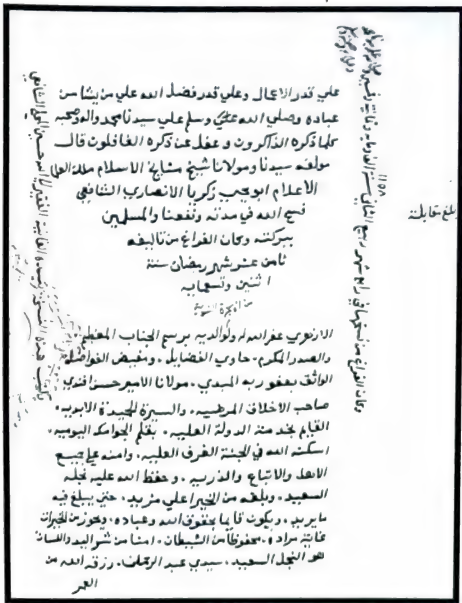 علي قدر الاعمال وعلي قدر فضل الله علي من يشا من
عباده وصلي الله علي وسلم علي سيدنا محمد واله وصحبه
كلما ذكره الذاكرون وغفل عن ذكره الغافلون قال
مولفه سيدنا ومولانا شيخ مشايخ الاسلام ملك العلما
الاعلام ابو يحيى زكريا الانصاري الشافعي
فسح الله في مدته ونفعنا والمسلمين
ببركته وكان الفراغ من تاليفه
ثامن عشر شهر رمضان سنة
اثنين وتسعمايه
من الهجرة النبوية
غفر الله له ولوالديه برسم الجناب المعظم
والصدر المكرم، حاوي الفضايل، ومفيض الفواضل
الواثق بعفو ربه المبدي، مولانا الامير حسن افندي
صاحب الاخلاق المرضيه، والسيرة الحميدة الابديه،
القايم بخدمة الدولة العليه، بقلم الجوامك اليوميه،
اسكنه الله في الجنة الغرف العليه، وامنه علي جميع
الاهل والاتباع والذريه، وحفظ الله عليه نجله
السعيد، وبلغه من الخير اعلي مزيد، حتي يبلغ فيه
ما يريد، ويكون قايما بحقوق الله وعباده، ويحوز من الخيرات
غاية مراده، محفوظا من الشيطان، امنا من شر اليد واللسان
هو النجل السعيد، سيدي عبد الرحمان، رزقه الله من
العمر
وكان الفراغ من نسختها في رابع شهر ربيع الثاني سنة الف ومايه وثمانية وخمسين
١١٥٨
بلغ مقابلة
وكتب هذه النسخة المباركة الفقير
الشافعي